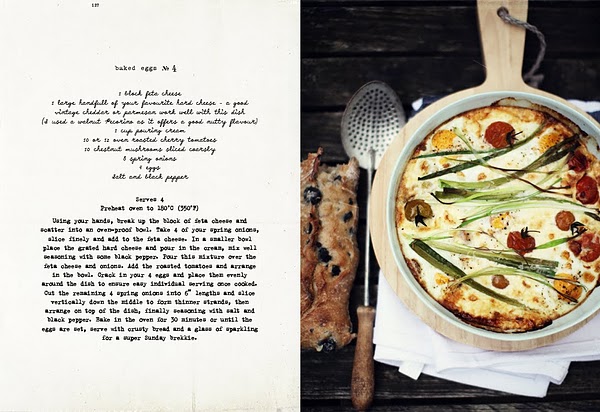 127
baked eggs № 4
1 block feta cheese
1 large handfull of your favourite hard cheese - a good
vintage cheddar or parmesan work well with this dish
(I used a walnut Pecorino as it offers a good nutty flavour)
1 cup pouring cream
10 or 12 oven roasted cherry tomatoes
10 chestnut mushrooms sliced coarsly
8 spring onions
4 eggs
Salt and black pepper
Serves 4
Preheat oven to 180°C (350°F)
Using your hands, break up the block of feta cheese and
scatter into an oven-proof bowl. Take 4 of your spring onions,
slice finely and add to the feta cheese. In a smaller bowl
place the grated hard cheese and pour in the cream, mix well
seasoning with some black pepper. Pour this mixture over the
feta cheese and onions. Add the roasted tomatoes and arrange
in the bowl. Crack in your 4 eggs and place then evenly
around the dish to ensure easy individual serving once cooked.
Cut the remaining 4 spring onions into 6" lengths and slice
vertically down the middle to form thinner strands, then
arrange on top of the dish, finally seasoning with salt and
black pepper. Bake in the oven for 30 minutes or until the
eggs are set, serve with crusty bread and a glass of sparkling
for a super Sunday brekkie.